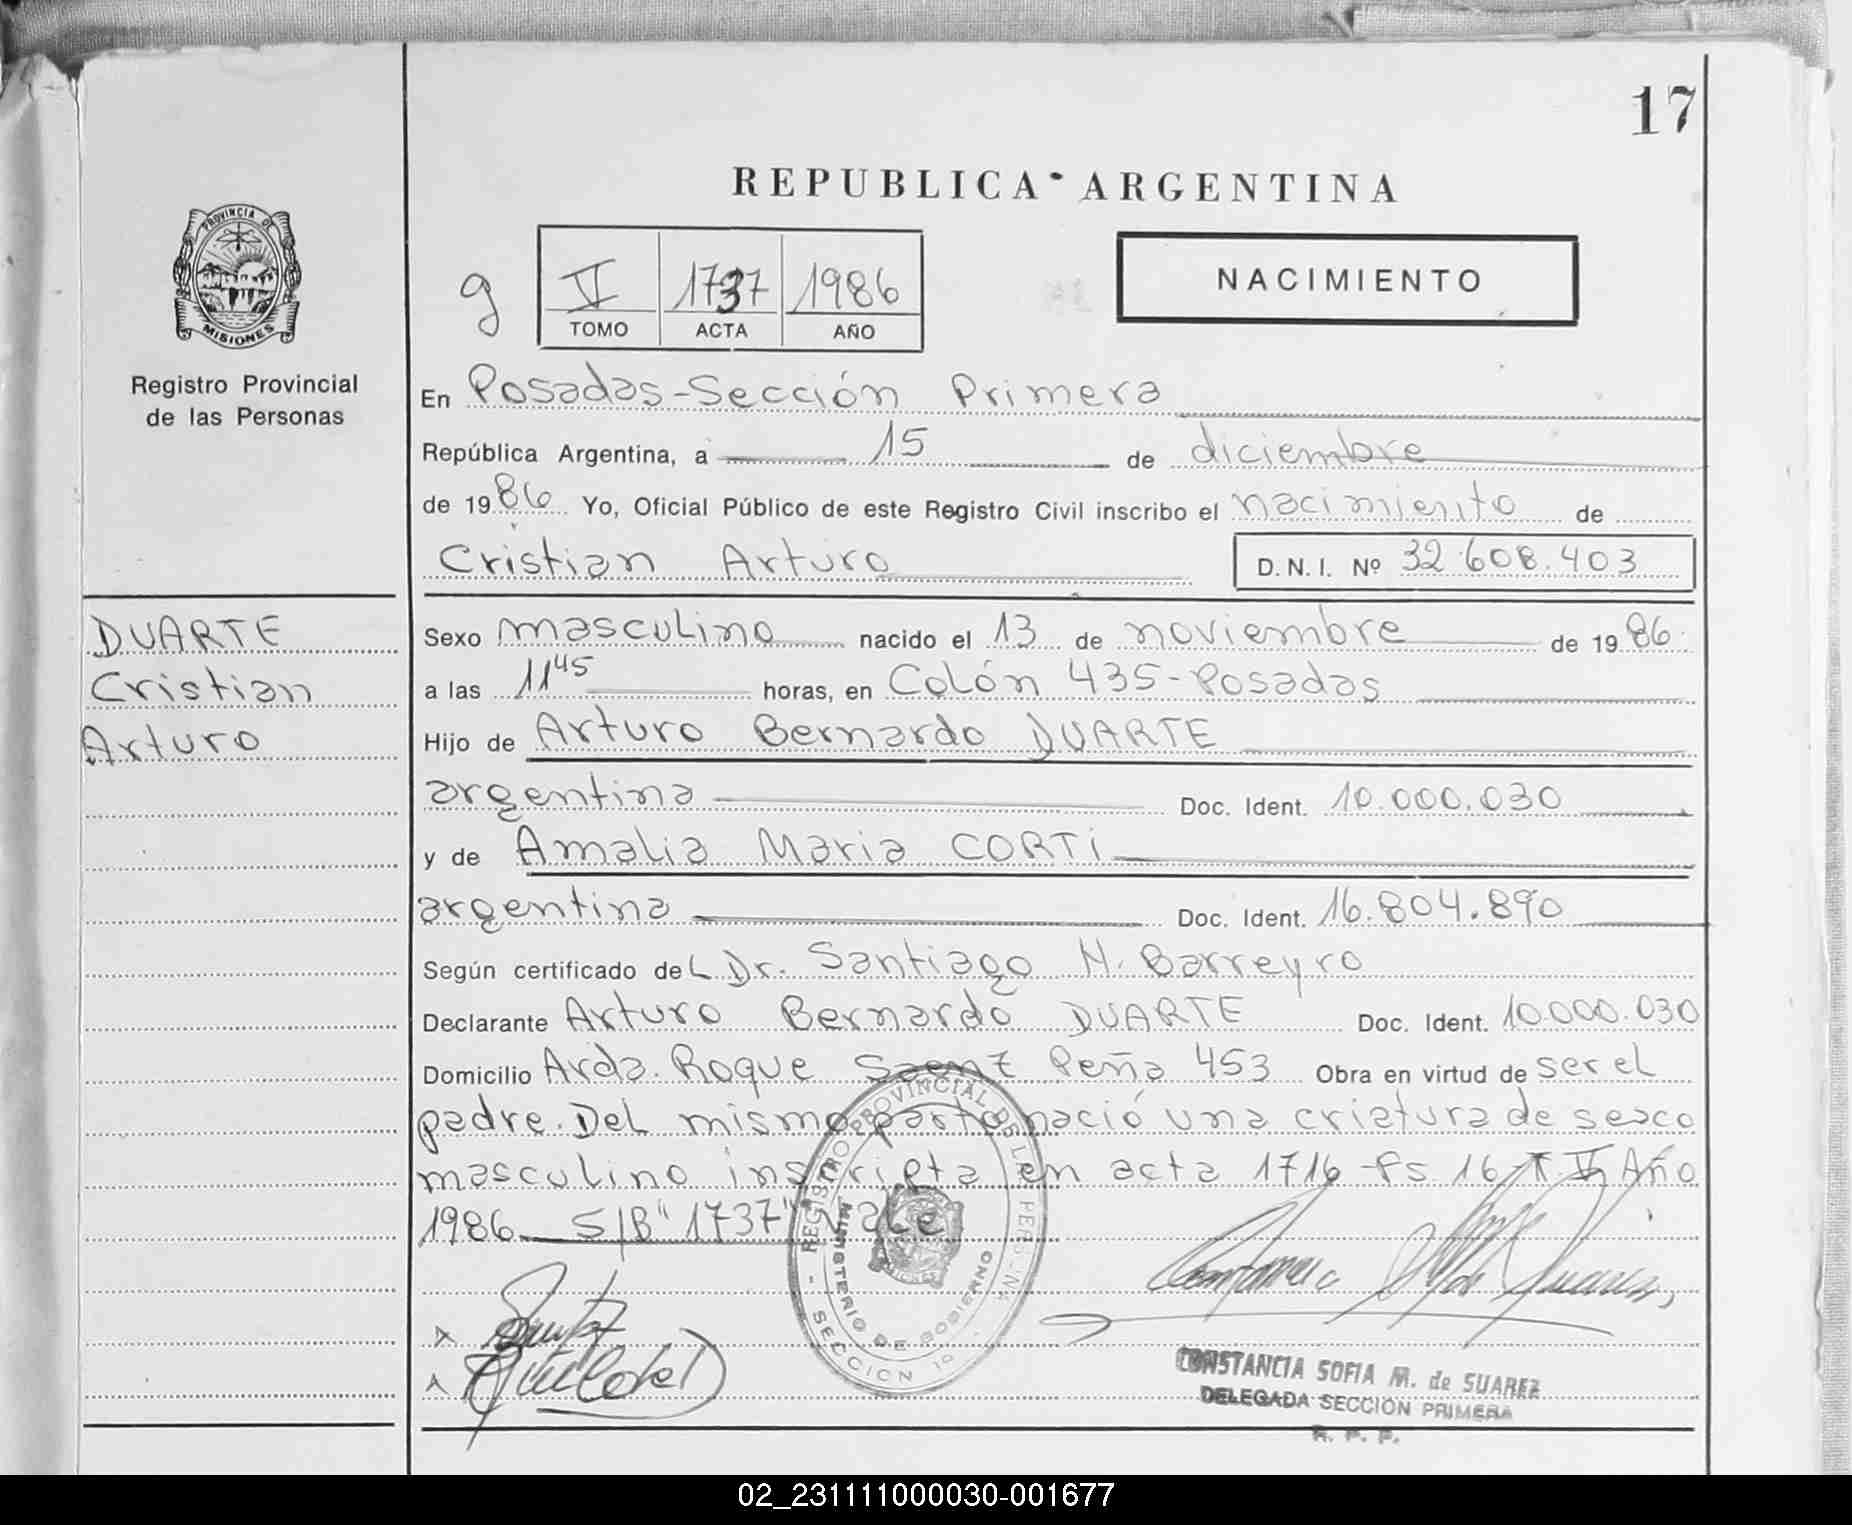 17
REPUBLICA ARGENTINA
PROVINCIA DE MISIONES
Registro Provincial
de las Personas
g
V 1737 1986
TOMO ACTA AÑO
NACIMIENTO
En Posadas-Sección Primera
República Argentina, a 15 de diciembre
de 1986 Yo, Oficial Público de este Registro Civil inscribo el nacimiento de
Cristian Arturo D.N.I. Nº 32.608.403
DUARTE
Cristian
Arturo
Sexo masculino nacido el 13 de noviembre de 1986.
a las 11 45 horas, en Colón 435-Posadas
Hijo de Arturo Bernardo DUARTE
argentina Doc. Ident. 10.000.030
y de Amalia Maria CORTI
argentina Doc. Ident. 16.804.890
Según certificado deL Dr. Santiago N. Barreyro
Declarante Arturo Bernardo DUARTE Doc. Ident. 10.000.030
Domicilio Avda. Roque Saenz Peña 453 Obra en virtud de ser el
padre. Del mismo parto nació una criatura de sexo
masculino inscripta en acta 1716-Fs. 16 T. V Año
1986. S/B "1737" Vale
REGISTRO PROVINCIAL DE LAS PERSONAS
MINISTERIO DE GOBIERNO
SECCION 1º
CONSTANCIA SOFIA M. de SUAREZ
DELEGADA SECCION PRIMERA
R. P. P.
02_231111000030-001677